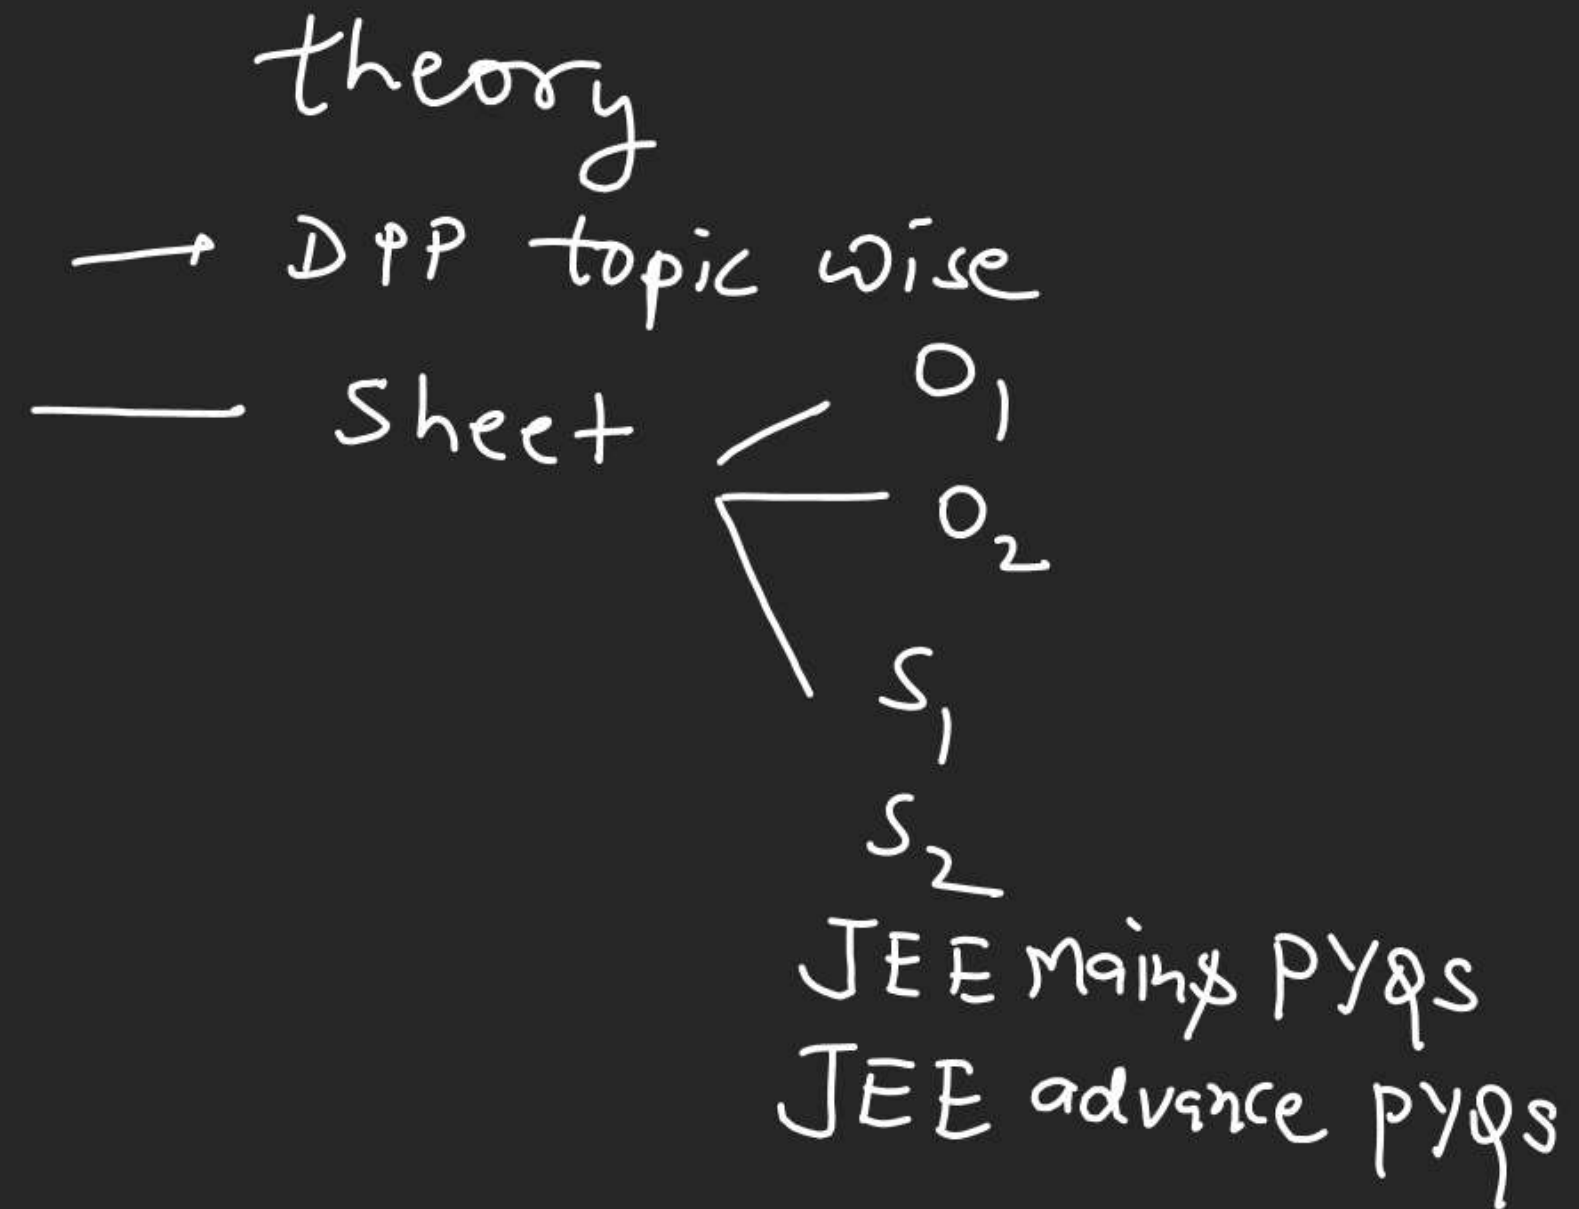 theory
→ DPP topic wise
— Sheet
O1
O2
S1
S2
JEE Main PYQS
JEE advance PYQS